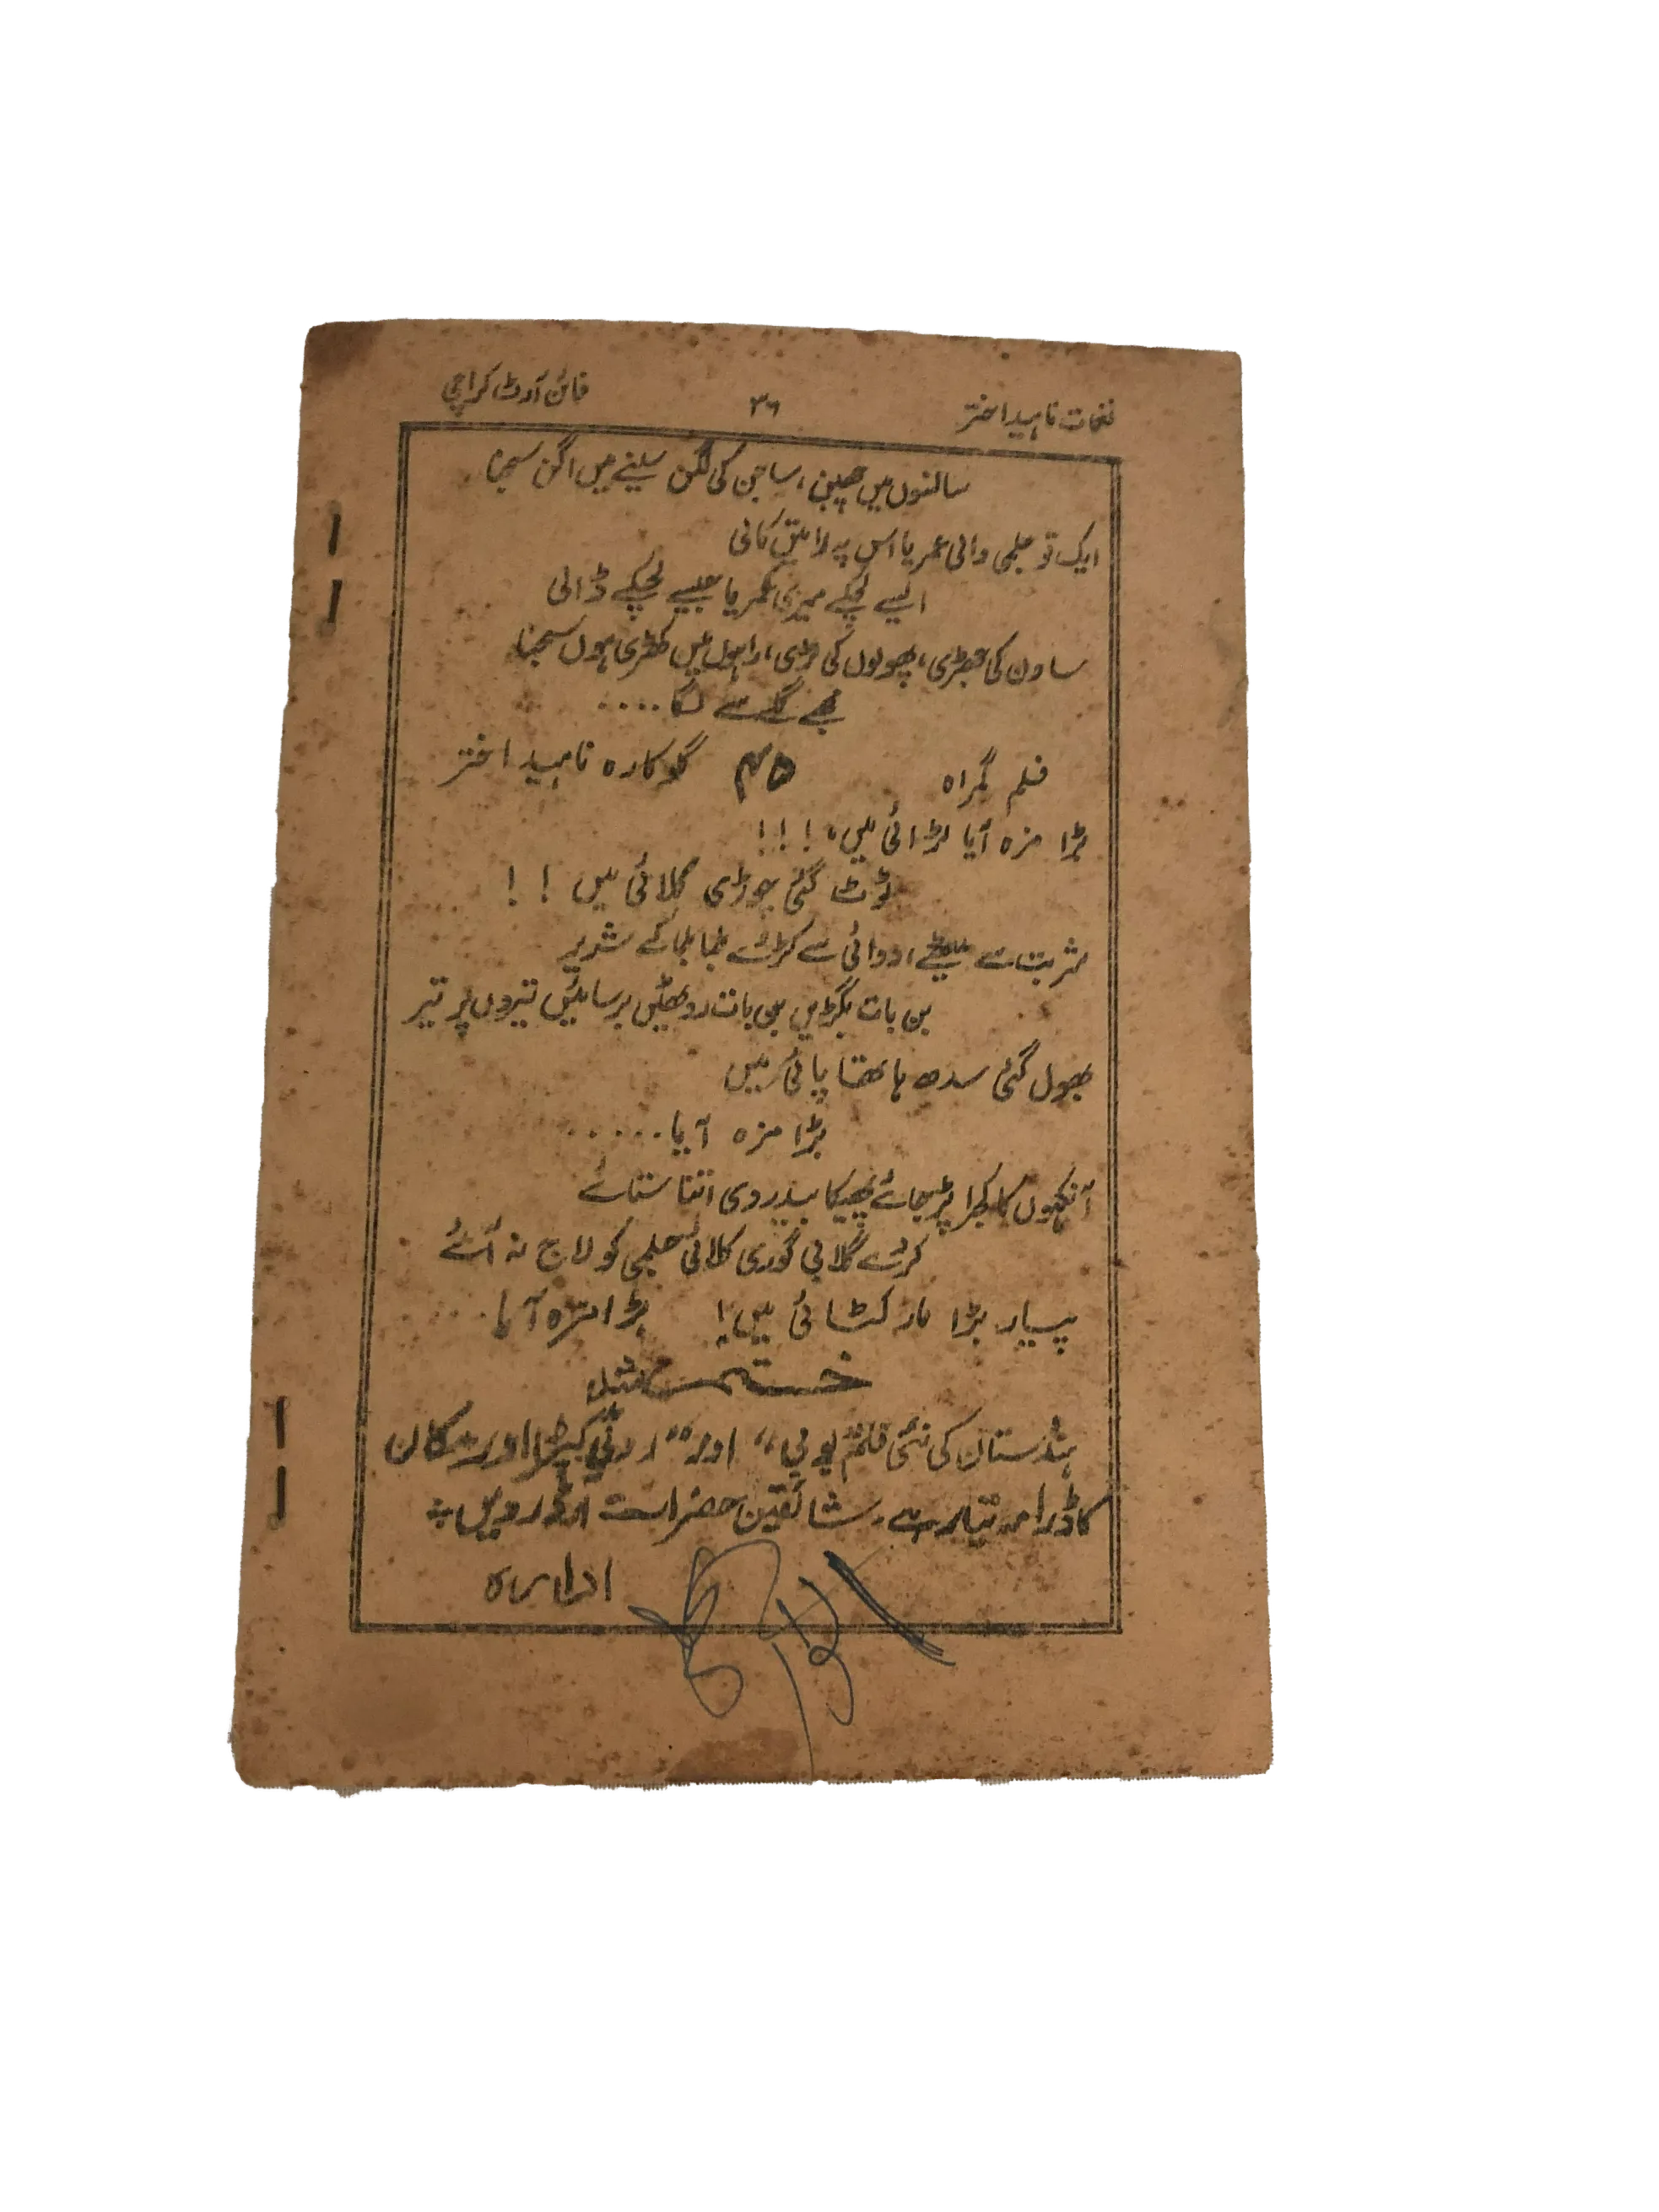 نغمات ناہید اختر ۳۶ فائن آرٹ کراچی
سانسوں میں چبھن، ساجن کی لگن سینے میں اگن سجنا
ایک تو ظلمی والی عمریا اس پہ راتیں کالی
ایسے لچکے میری کمریا جیسے لچکے ڈالی
ساون کی جھڑی، پھولوں کی لڑی، راہوں میں کھڑی ہوں سجنا
مجھے گلے سے لگا....
فلم گمراہ ۴۵ گلوکارہ ناہید اختر
بڑا مزہ آیا لڑائی میں، !!!
ٹوٹ گئی چوڑی کلائی میں !!
شربت سے میٹھے، دوائی سے کڑوے شریر
بن بات بگڑیں بن بات روٹھیں برسائیں تیروں پر تیر
بھول گئی سدھ ہاتھا پائی میں
بڑا مزہ آیا.....
آنکھوں کا کجرا پڑ جائے پھیکا بیدردی اتنا ستائے
کرے گلابی گوری کلائی ظلمی کو لاج نہ آئے
پیار بڑا مار کٹائی میں! بڑا مزہ آیا....
ختم شد
ہندستان کی نئی فلم بوبی" اور "روٹی کپڑا اور مکان
کا ڈرامہ تیار ہے. شائقین حضرات آرڈر دیں
ادارہ